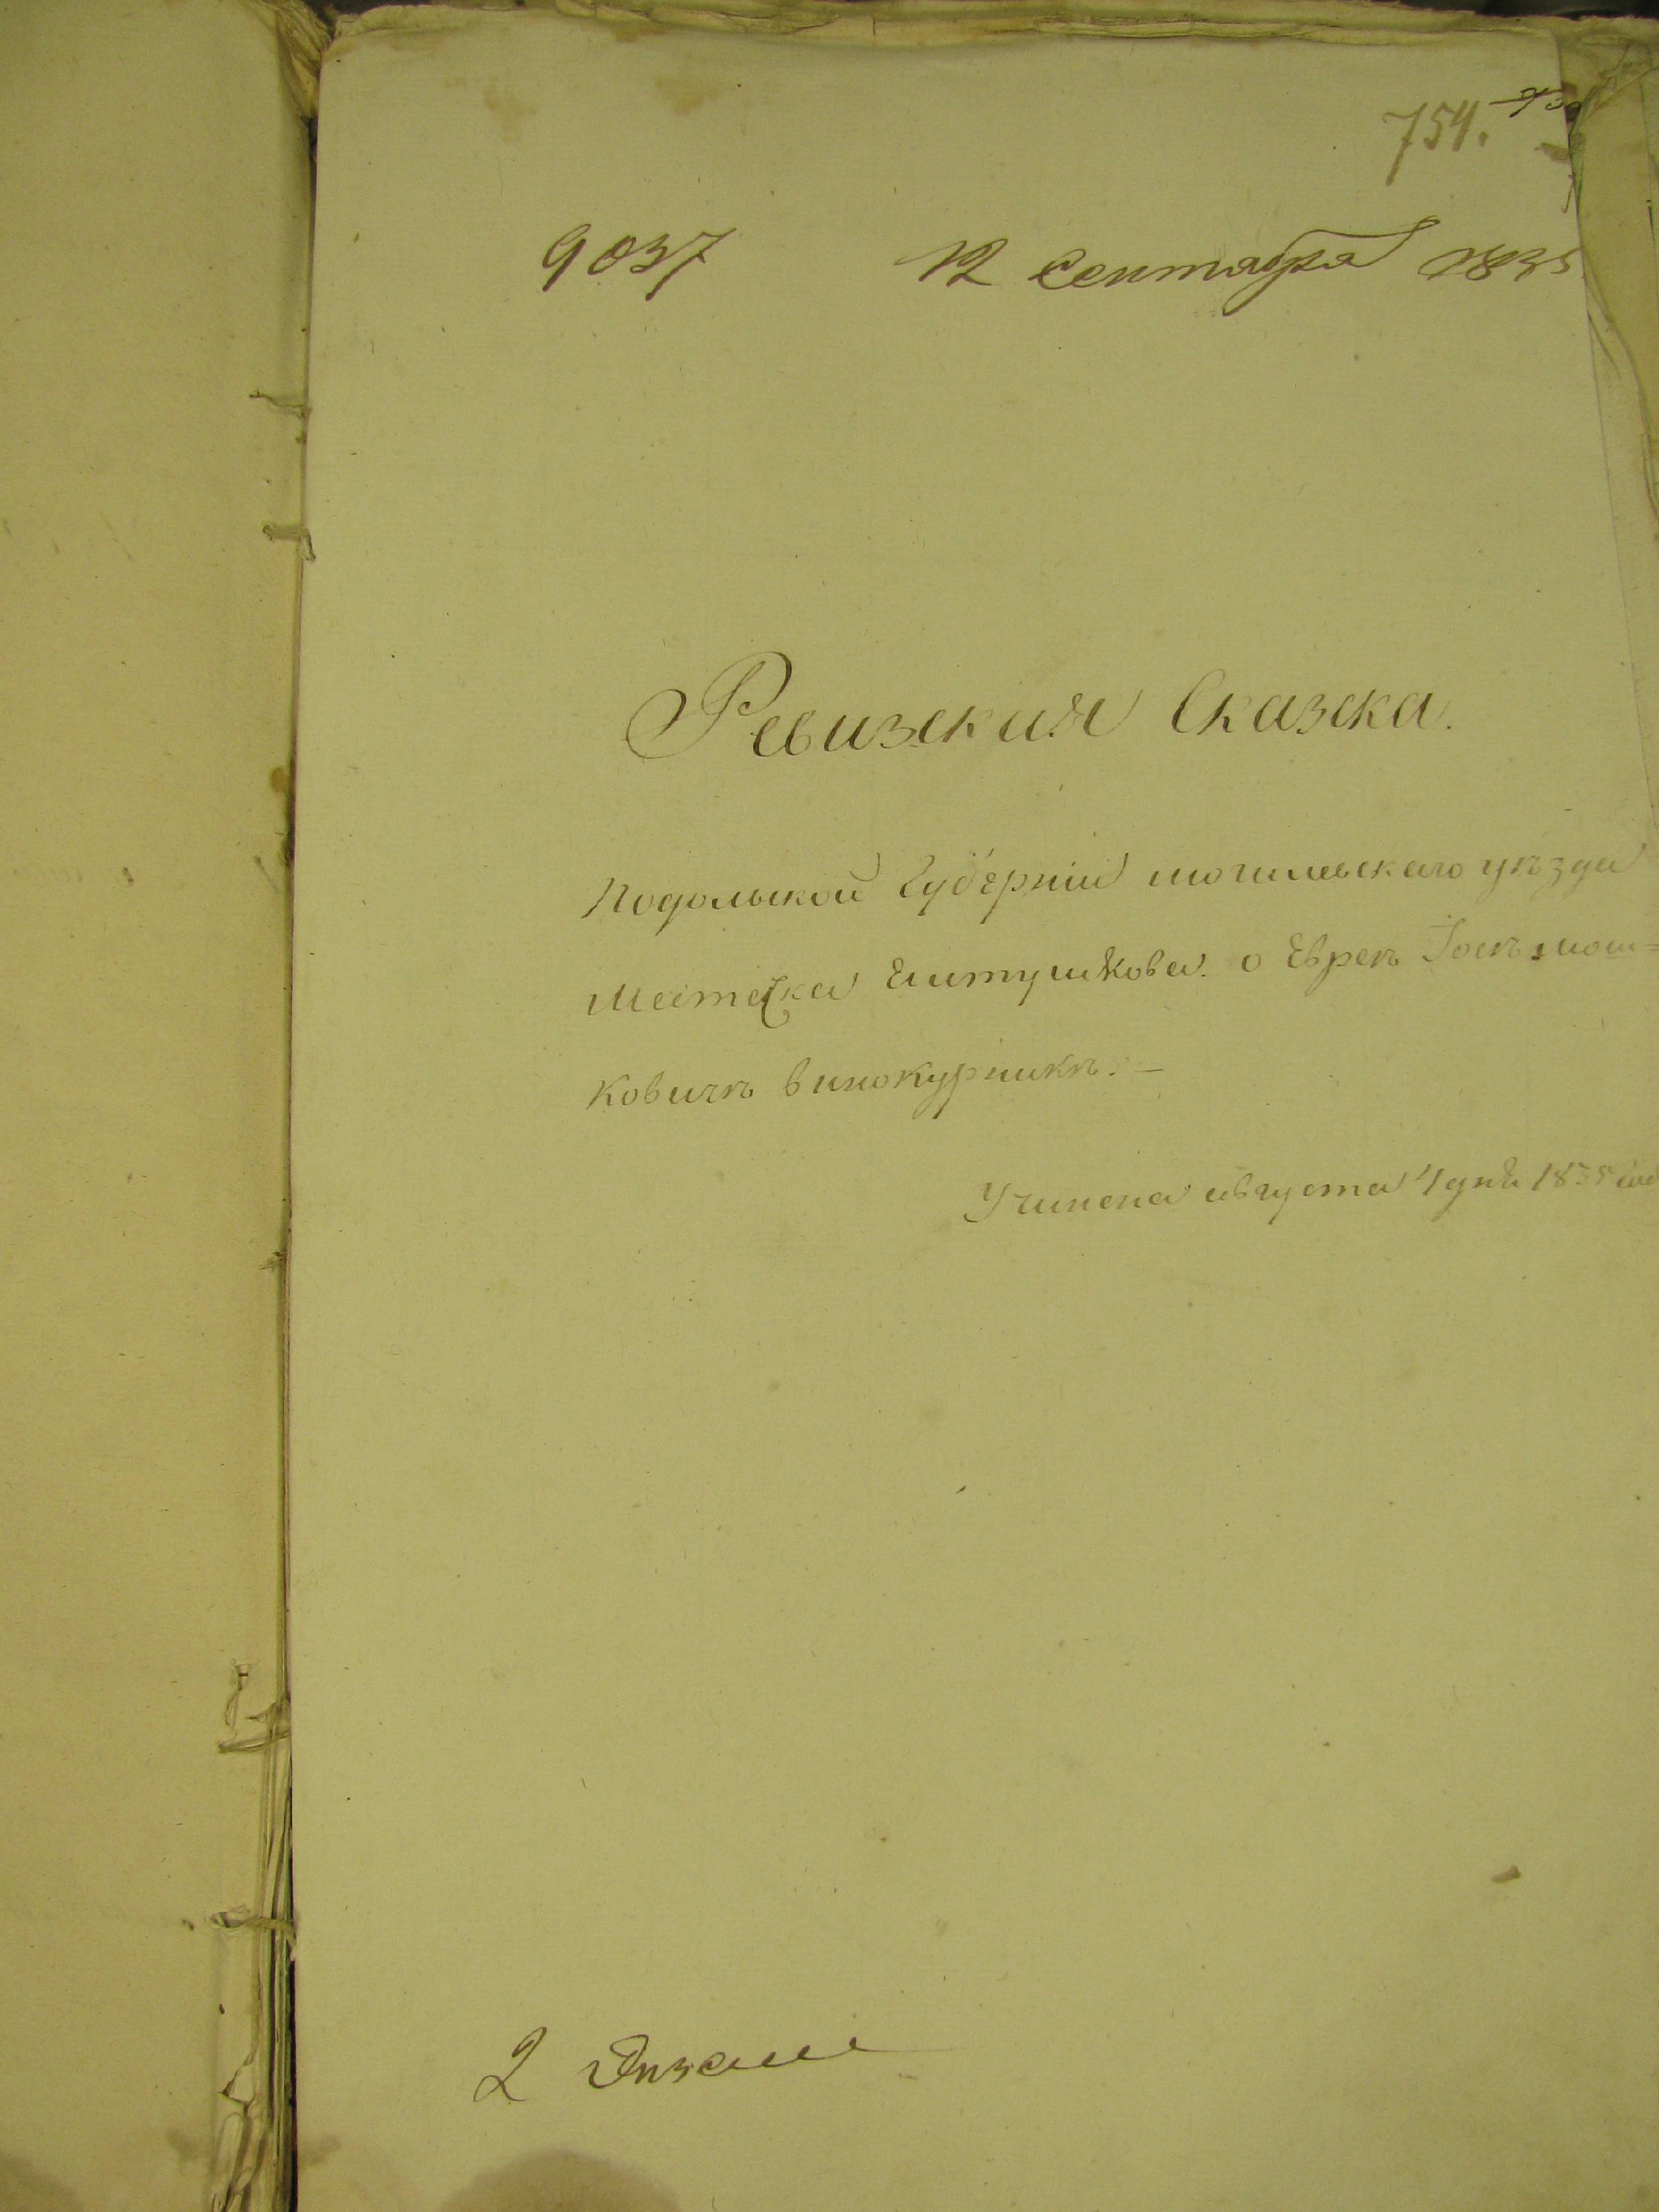 754.
9037 12 Сентября 1835
Ревизская Сказка.
Подольской Губерніи могилевскаго уѣзда
Местечка Елтушкова. о Евреѣ Іосѣ мош=
ковичѣ винокурникѣ. —
Учинена августа 4 дня 1835 год
2 Экзем